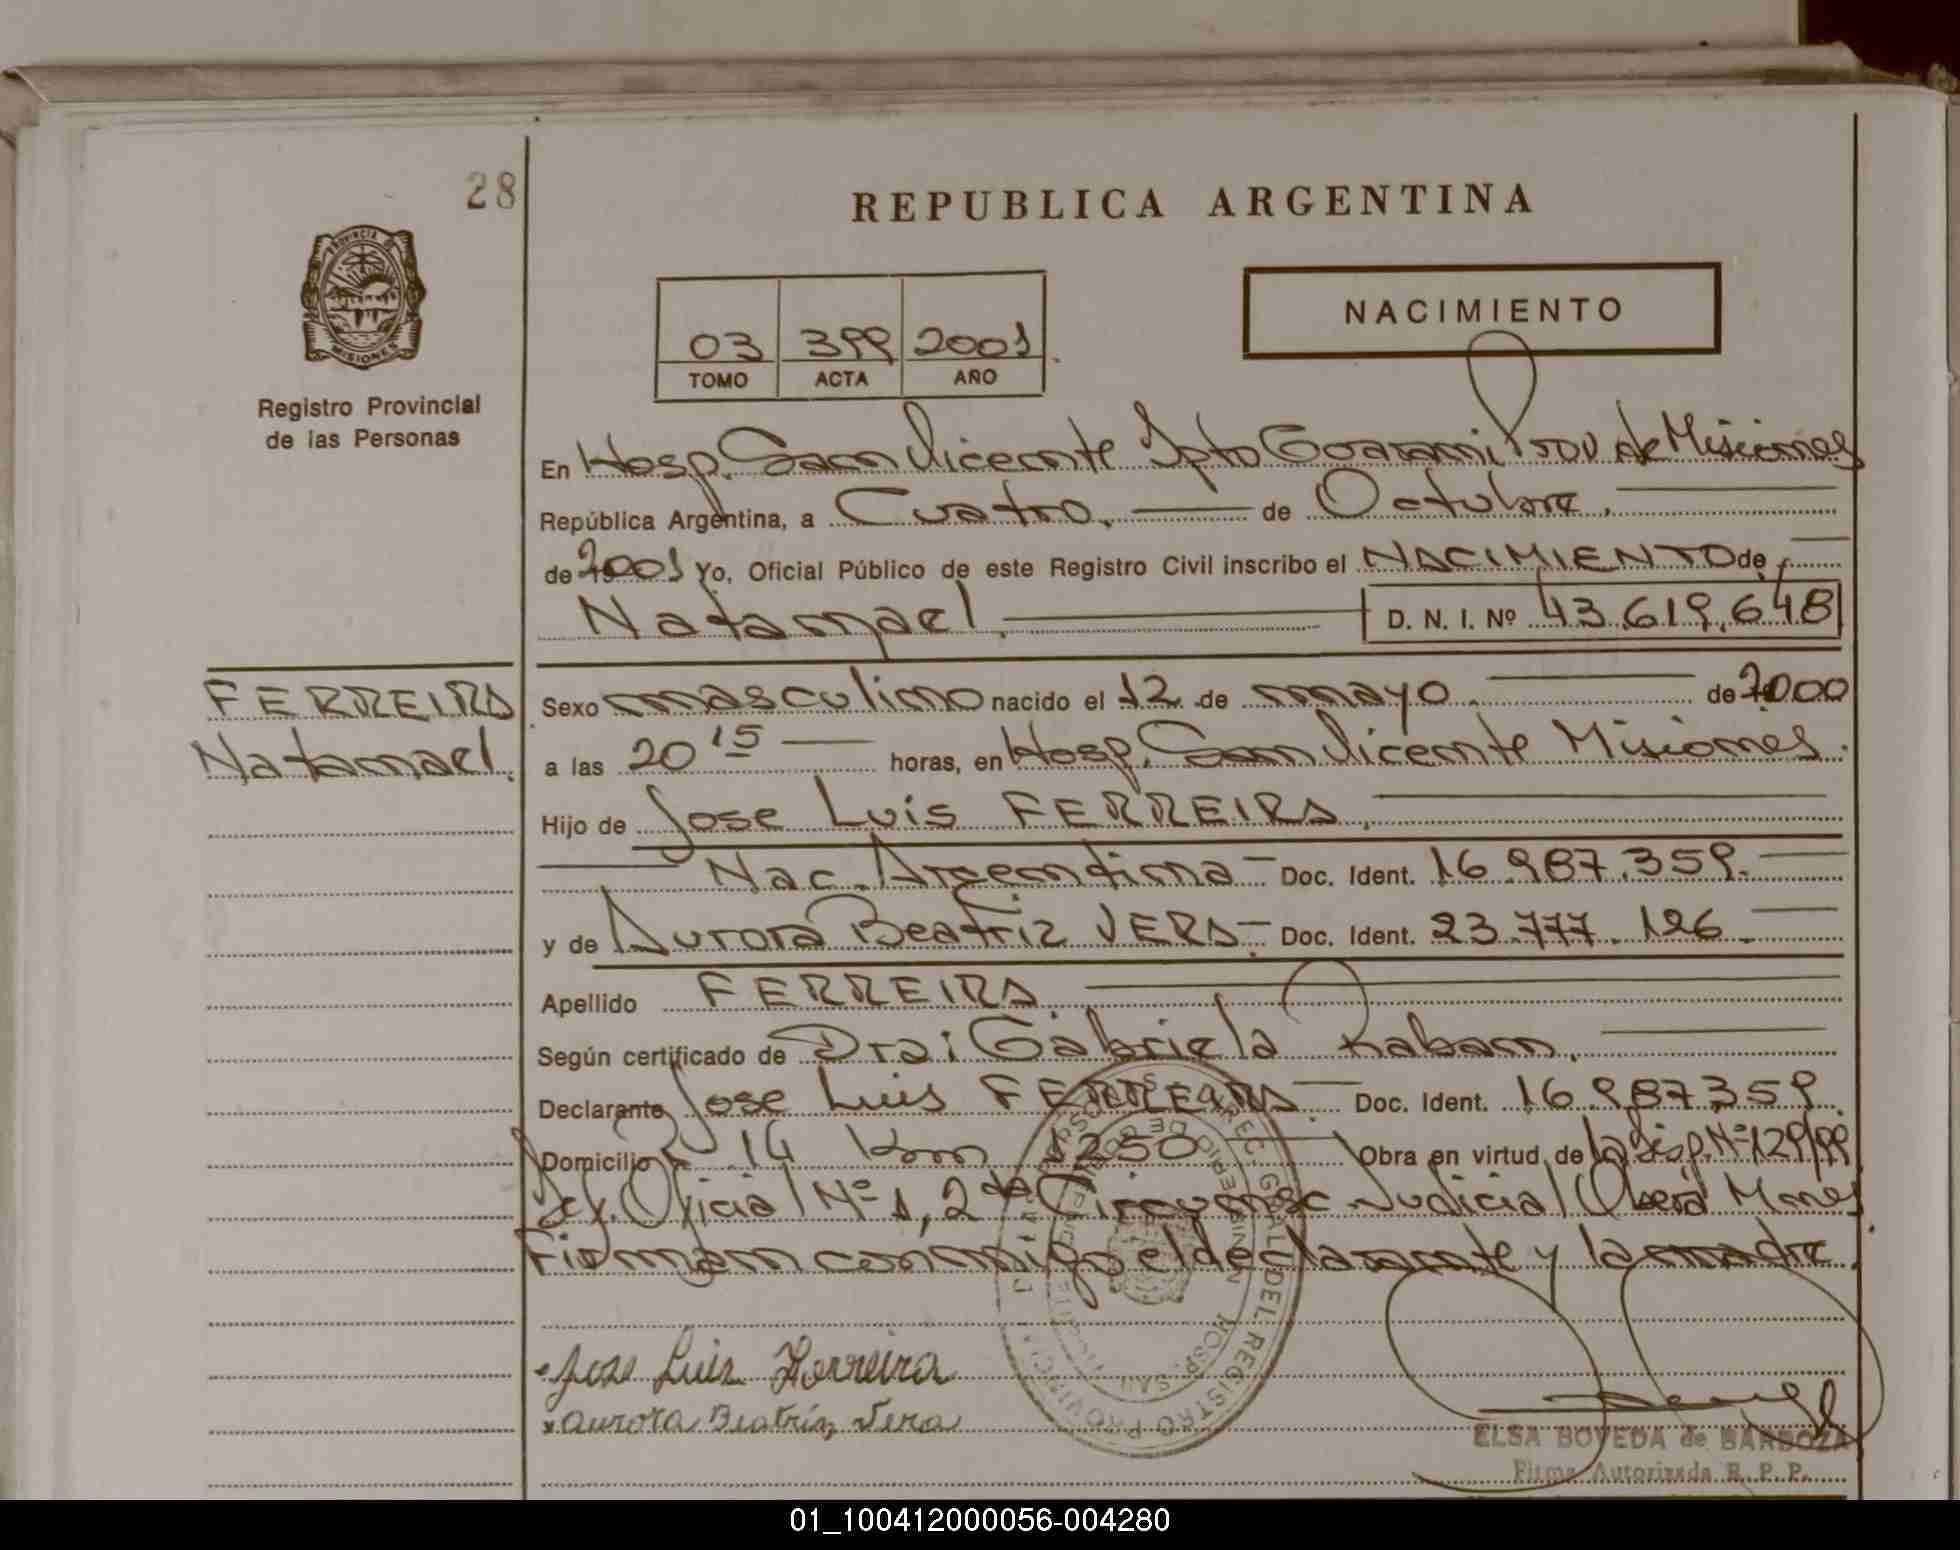 28
REPUBLICA ARGENTINA
PROVINCIA DE MISIONES
Registro Provincial
de las Personas
03 399 2001
TOMO ACTA AÑO
NACIMIENTO
En Hosp. San Vicente Dpto Guarani Prov de Misiones
República Argentina, a Cuatro. de Octubre.
de 2001 Yo, Oficial Público de este Registro Civil inscribo el NACIMIENTO de
Natanael. D. N. I. Nº 43.619.648
FERREIRA
Natanael.
Sexo masculino nacido el 12 de mayo de 2000
a las 20 15 horas, en Hosp. San Vicente Misiones.
Hijo de Jose Luis FERREIRA.
Nac. Argentina Doc. Ident. 16.987.359.
y de Aurora Beatriz VERA Doc. Ident. 23.777.126.
Apellido FERREIRA
Según certificado de Dra: Gabriela Raban.
Declarante Jose Luis FERREIRA Doc. Ident. 16.987.359.
Domicilio 14 Km 1250 Obra en virtud de la Disp. Nº 129/99
Def. Oficial Nº 1, 2da Circunsc. Judicial Oberá Mnes
Firman conmigo el declarante y la madre.
Jose Luis Ferreira
Aurora Beatriz Vera
ELSA BOVEDA de BARBOZA
Firma Autorizada R. P. P.
01_100412000056-004280